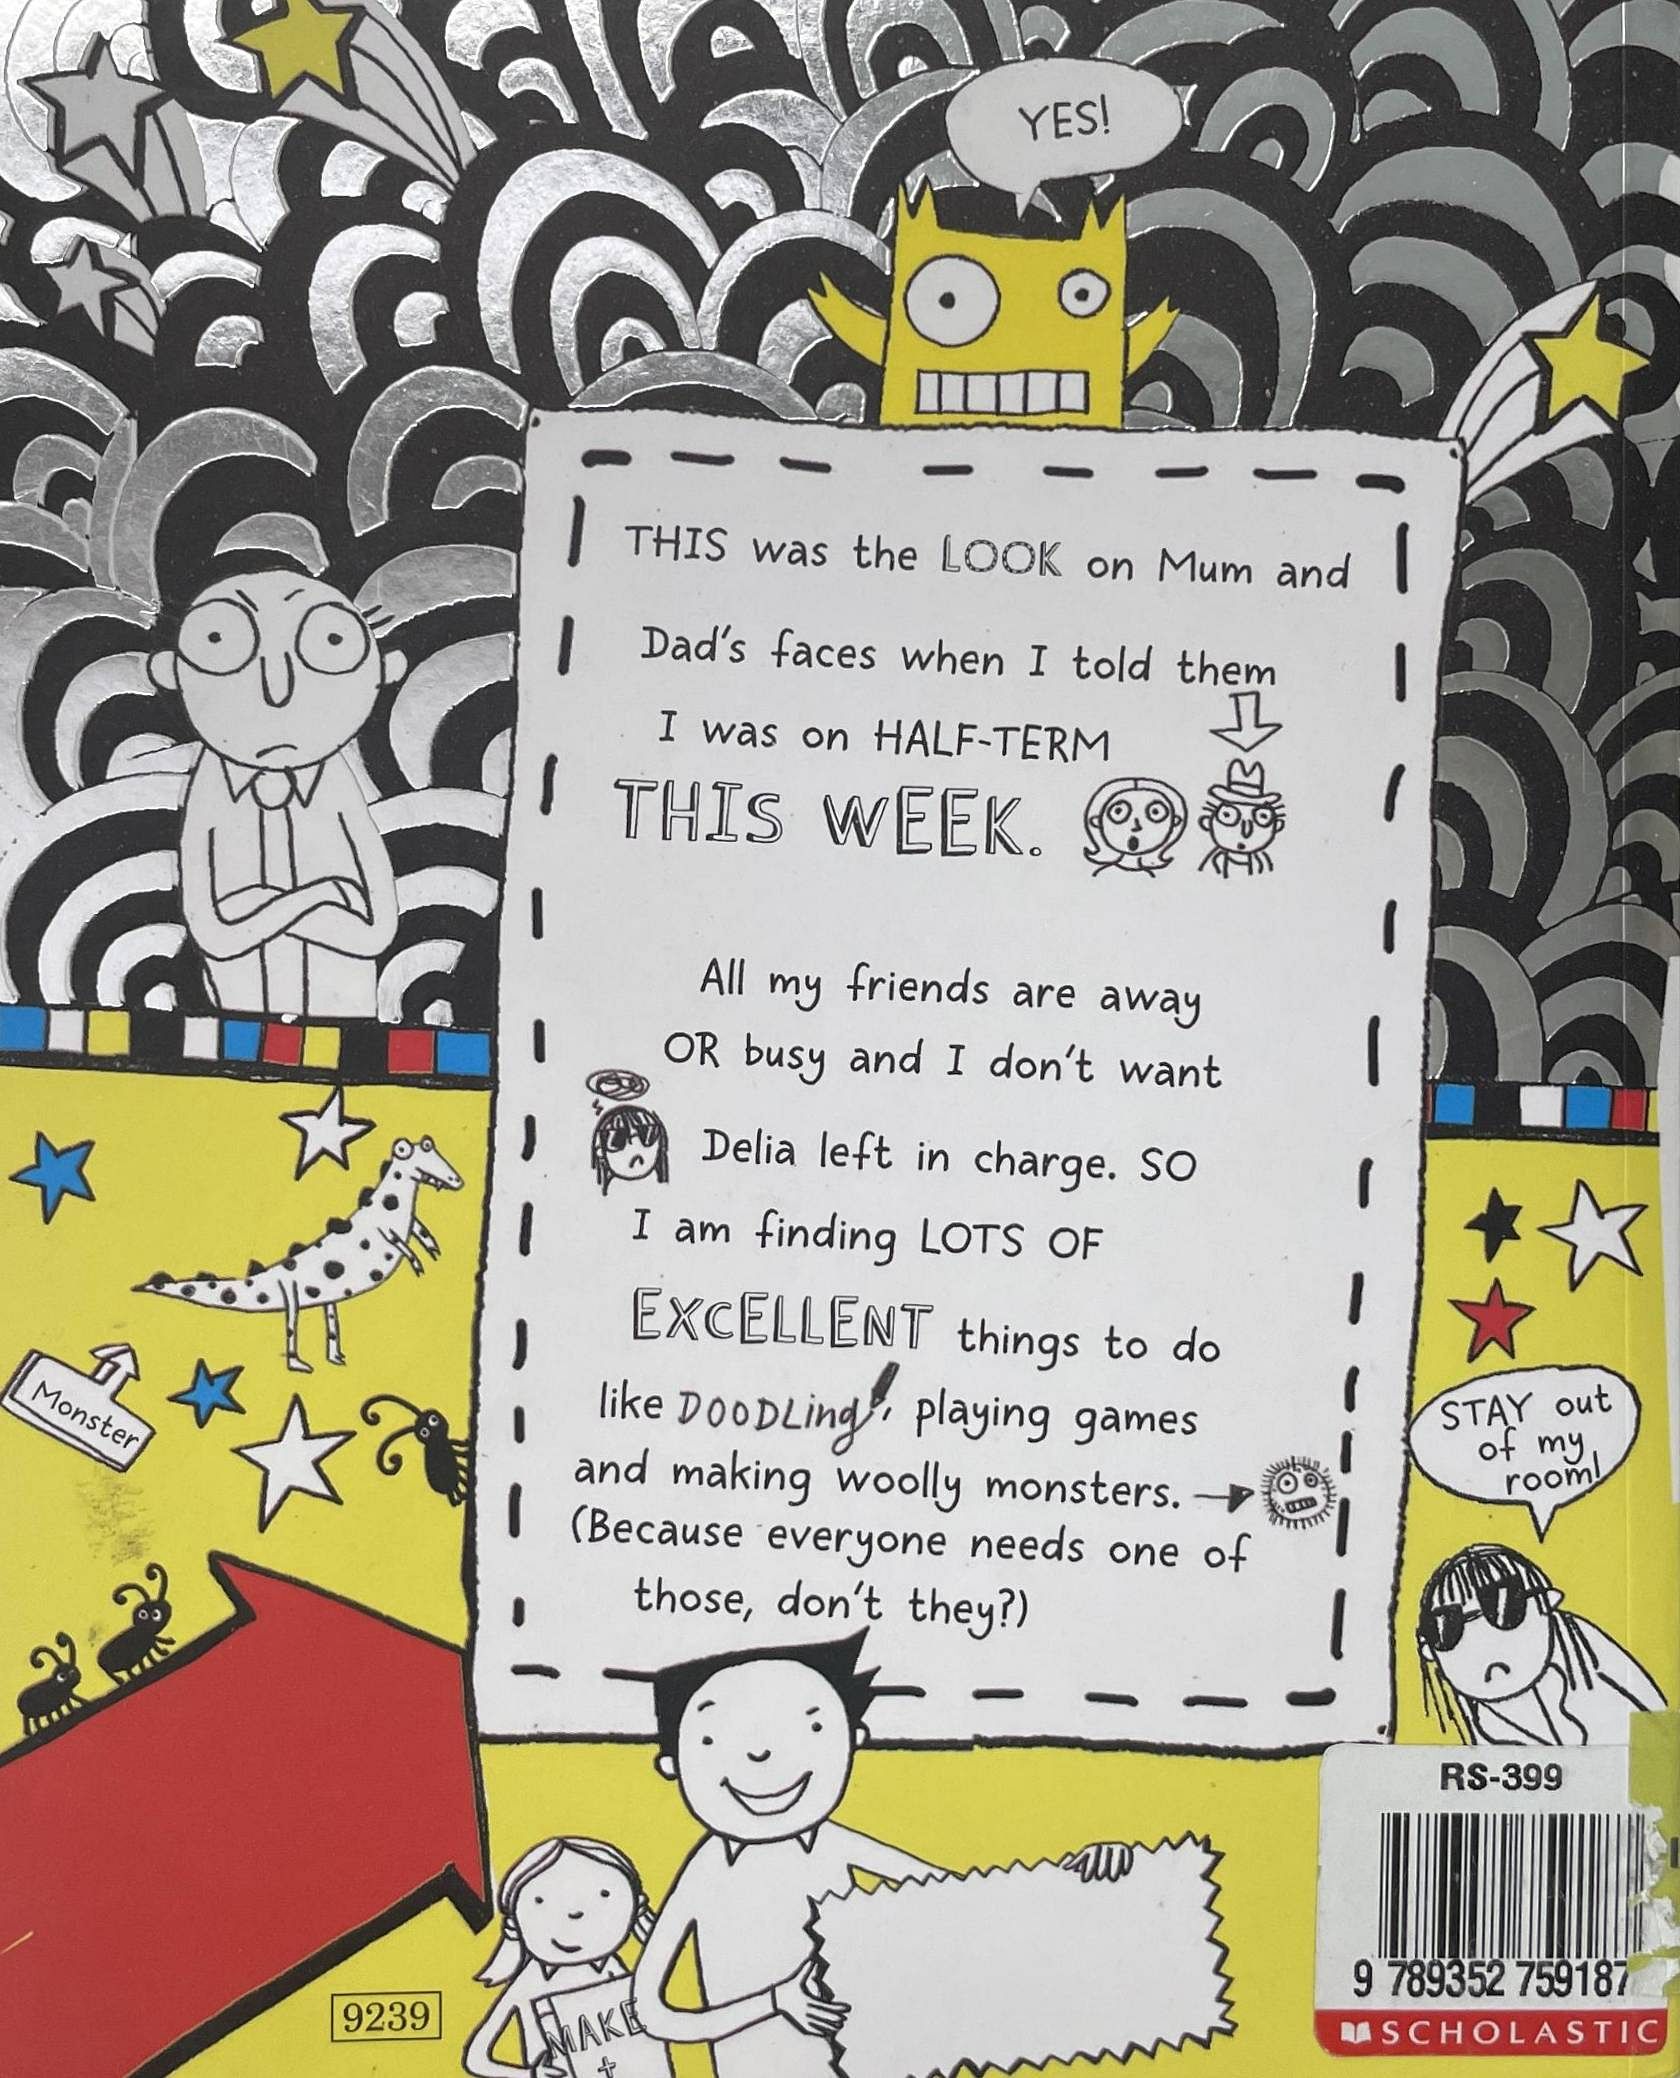 YES!
THIS was the LOOK on Mum and
Dad's faces when I told them
I was on HALF-TERM
THIS WEEK.
All my friends are away
OR busy and I don't want
Delia left in charge. SO
I am finding LOTS OF
EXCELLENT things to do
like DOODLing, playing games
and making woolly monsters.
(Because everyone needs one of
those, don't they?)
Monster
STAY out
of my
room!
MAKE
+
9239
RS-399
9 789352 759187
SCHOLASTIC